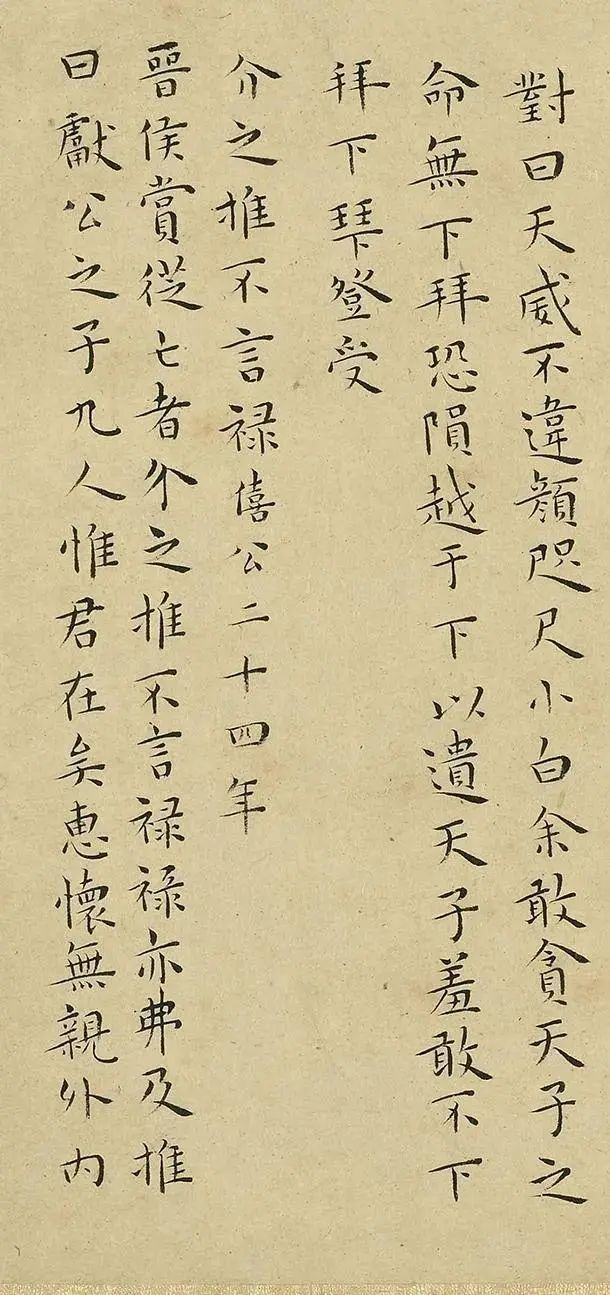 對曰天威不違顔咫尺小白余敢貪天子之
命無下拜恐隕越于下以遺天子羞敢不下
拜下拜登受
介之推不言禄僖公二十四年
晉侯賞從亡者介之推不言禄禄亦弗及推
曰獻公之子九人惟君在矣惠懷無親外内